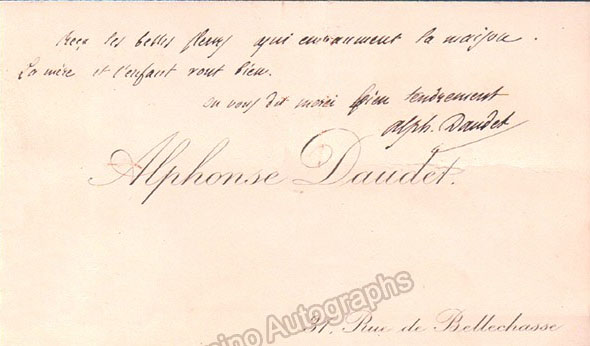 Reçu les belles fleurs qui embaument la maison.
La mère et l'enfant vont bien.
on vous dit merci bien tendrement
Alph. Daudet
Alphonse Daudet.
31, Rue de Bellechasse
ino Autographs